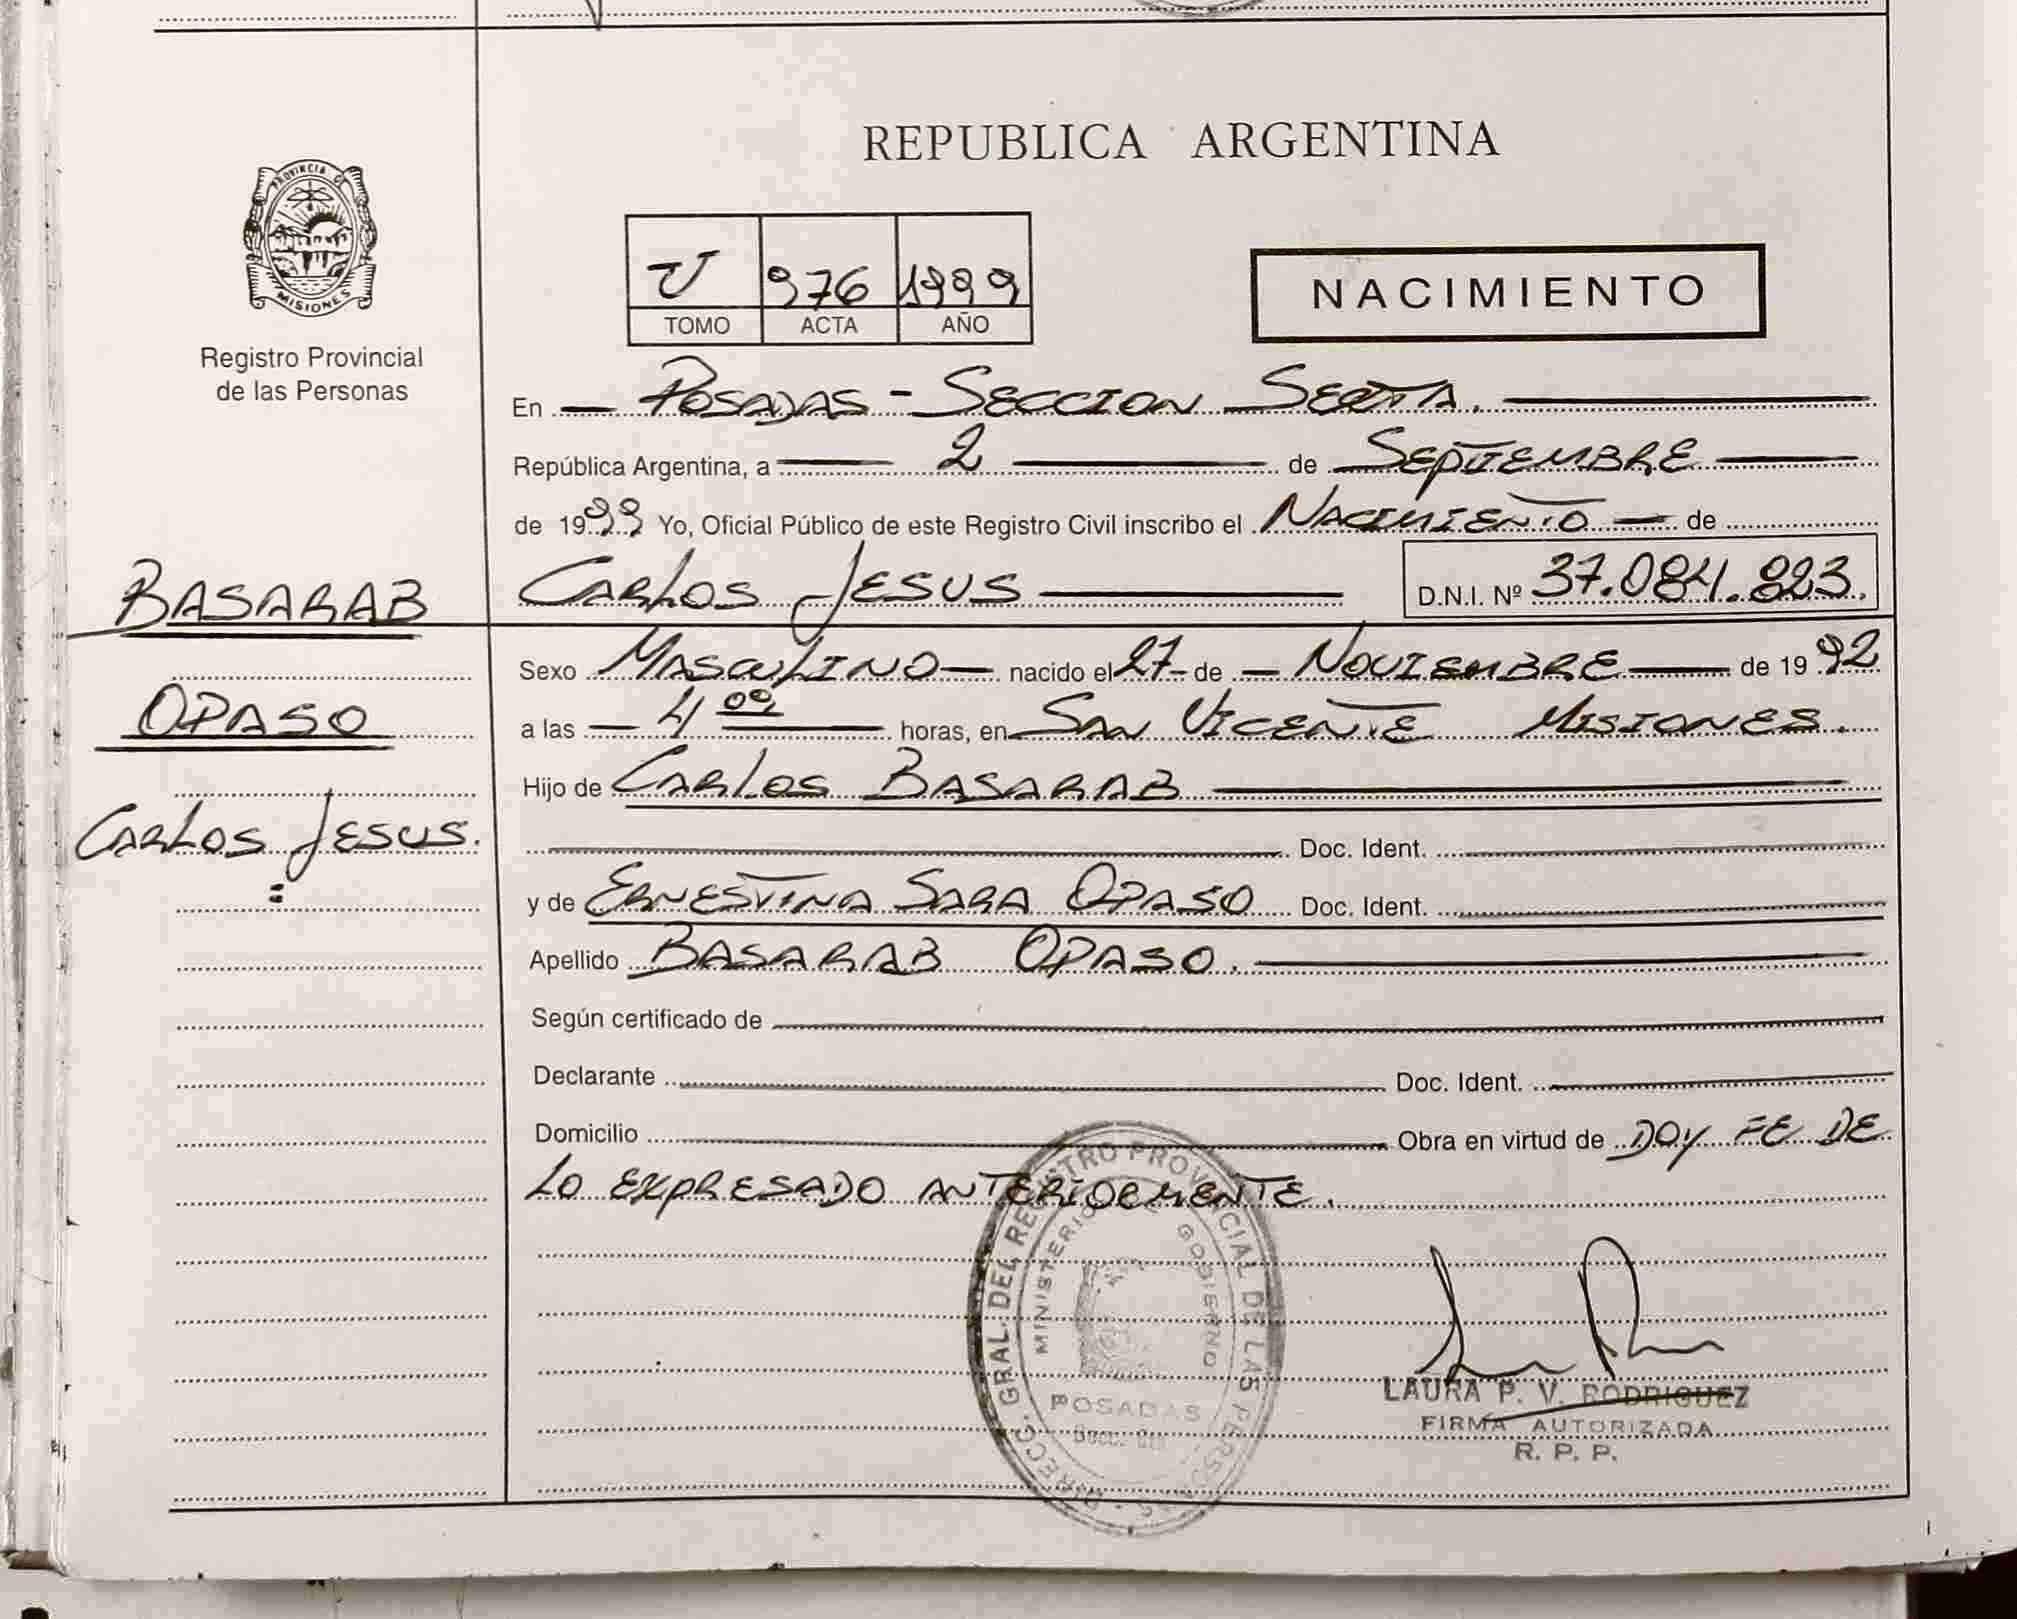 REPUBLICA ARGENTINA
PROVINCIA DE
MISIONES
Registro Provincial
de las Personas
U 976 1999
TOMO ACTA AÑO
NACIMIENTO
En POSADAS - SECCION SEXTA.
República Argentina, a 2 de SEPTIEMBRE
de 1999 Yo, Oficial Público de este Registro Civil inscribo el NACIMIENTO de
CARLOS JESUS D.N.I. Nº 37.084.823.
BASARAB
OPASO
CARLOS JESUS.
Sexo MASCULINO nacido el 27 de NOVIEMBRE de 1992
a las 4 00 horas, en SAN VICENTE MISIONES.
Hijo de CARLOS BASARAB
Doc. Ident.
y de ERNESTINA SARA OPASO Doc. Ident.
Apellido BASARAB OPASO.
Según certificado de
Declarante Doc. Ident.
Domicilio Obra en virtud de DOY FE DE
LO EXPRESADO ANTERIORMENTE.
DIRECC. GRAL. DEL REGISTRO PROVINCIAL DE LAS PERSONAS
MINISTERIO DE GOBIERNO
POSADAS
LAURA P. V. RODRIGUEZ
FIRMA AUTORIZADA
R. P. P.